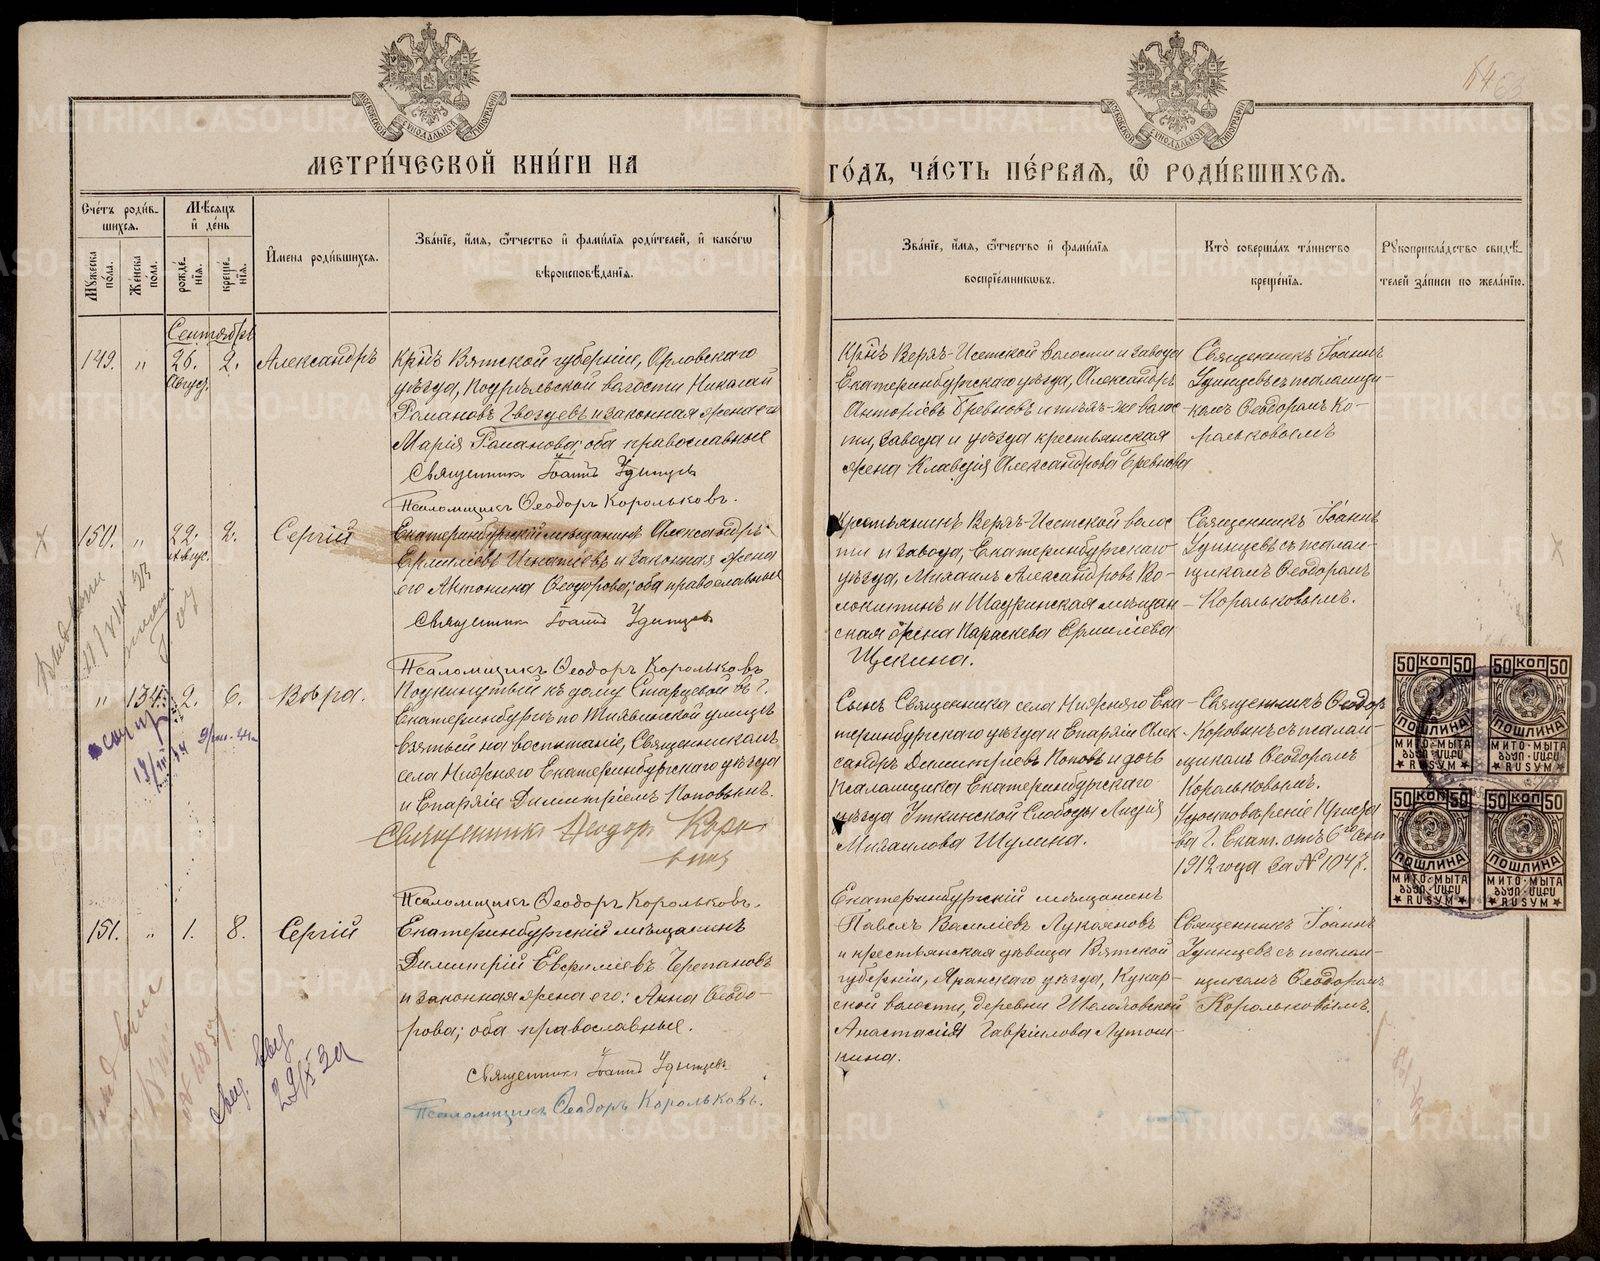 МЕТРИ́ЧЕСКОЙ КНИ́ГИ НА
ГО́ДЪ, ЧА́СТЬ ПЕ́РВАѦ, Ѽ РОДИ́ВШИХСѦ.
Сче́тъ роди́в-
шихсѧ.
Мѣсѧцъ
и҆ де́нь
Мꙋжеска
по́ла.
Же́нска
по́ла.
рожде́-
нїѧ.
креще́-
нїѧ.
И҆мена роди́вшихсѧ.
Зва́нїе, и҆́мѧ, ѻ҆́тчество и҆ фами́лїѧ роди́телей, и҆ како́гѡ
вѣроисповѣ́данїѧ.
Зва́нїе, и҆́мѧ, ѻ҆́тчество и҆ фами́лїѧ
воспрїе́мниковъ.
Кто̀ соверша́лъ та́инство
креще́нїѧ.
Рꙋкоприкла́дство свидѣ́-
телей за́писи по жела́нїю.
Сентябрь
149. " 26. 2. Александръ
Август.
Крнъ Вятской губерніи, Орловскаго
уѣзда, Подрѣльской волости Николай
Романовъ Гвоздевъ и законная жена его
Марія Романова; оба православные
Священникъ Іоаннъ Удинцевъ
Псаломщикъ Ѳеодоръ Корольковъ.
Крнъ Верхъ-Исетской волости и завода
Екатеринбургскаго уѣзда, Александръ
Антоніевъ Бревновъ и тѣхъ-же волос-
ти, завода и уѣзда крестьянская
жена Клавдія Александрова Бревнова
Священникъ Іоаннъ
Удинцевъ съ псаломщи-
комъ Ѳеодоромъ Ко-
рольковымъ
150. " 22. 2. Сергій
Авгус.
Екатеринбургскій мѣщанинъ Александръ
Ермиліевъ Игнатіевъ и законная жена
его Антонина Ѳеодорова; оба православные
Священникъ Іоаннъ Удинцевъ
Псаломщикъ Ѳеодоръ Корольковъ
Крестьянинъ Верхъ-Исетской волос
ти и завода, Екатеринбургскаго
уѣзда, Михаилъ Александровъ Во-
локитинъ и Шадринская мѣщан
ская жена Параскева Ермиліева
Щекина.
Священникъ Іоаннъ
Удинцевъ съ псалом-
щикомъ Ѳеодоромъ
Корольковымъ.
" 134. 2. 6. Вѣра.
Подкинутый къ дому Старцевой въ г.
Екатеринбургъ по улицѣ
взятый на воспитаніе, Священникомъ
села Нижняго Екатеринбургскаго уѣзда
и Епархіи Димитріемъ Поповымъ.
Священникъ Ѳеодоръ Коро
винъ
Псаломщикъ Ѳеодоръ Корольковъ.
Сынъ Священника села Нижняго Ека
теринбургскаго уѣзда и Епархіи Алек
сандръ Димитріевъ Поповъ и дочь
псаломщика Екатеринбургскаго
уѣзда Уткинской Слободы Лидія
Михаилова Шулина.
Священникъ Ѳеодоръ
Коровинъ съ псалом-
щикомъ Ѳеодоромъ
Корольковымъ.
Удостовѣреніе Пристава
г. Екат. отъ 6го Сент.
1912 года за № 1047.
151. " 1. 8. Сергій
Екатеринбургскій мѣщанинъ
Димитрій Евфиміевъ Черепановъ
и законная жена его: Анна Ѳеодо-
рова; оба православные.
Священникъ Іоаннъ Удинцевъ
Псаломщикъ Ѳеодоръ Корольковъ.
Екатеринбургскій мѣщанинъ
Павелъ Василіевъ Лукояновъ
и крестьянская дѣвица Вятской
губерніи, Яранскаго уѣзда, Кукар-
ской волости, деревни
Анастасія Гавріилова Лутош-
кина.
Священникъ Іоаннъ
Удинцевъ съ псалом-
щикомъ Ѳеодоромъ
Корольковымъ.
50 КОП 50
ПОШЛИНА
МИТО·МЫТА
RUSYM
50 КОП 50
ПОШЛИНА
МИТО·МЫТА
RUSYM
50 КОП 50
ПОШЛИНА
МИТО·МЫТА
RUSYM
50 КОП 50
ПОШЛИНА
МИТО·МЫТА
RUSYM
METRIKI.GASO-URAL.RU